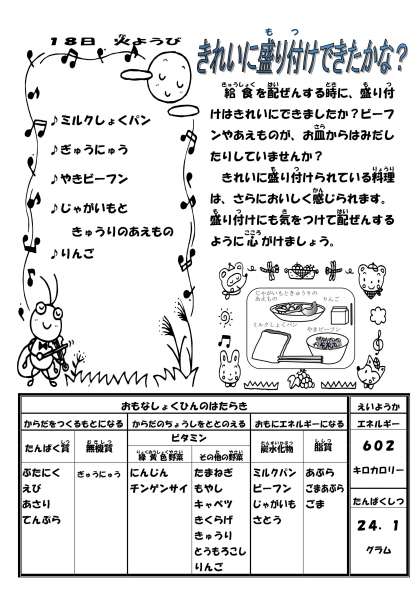 18日 火ようび
♪ミルクしょくパン
♪ぎゅうにゅう
♪やきビーフン
♪じゃがいもと
きゅうりのあえもの
♪りんご
きれいに盛り付けできたかな？
給食を配ぜんする時に、盛り付
けはきれいにできましたか？ビーフ
ンやあえものが、お皿からはみだし
たりしていませんか？
きれいに盛り付けられている料理
は、さらにおいしく感じられます。
盛り付けにも気をつけて配ぜんする
ように心がけましょう。
じゃがいもときゅうりの
あえもの
りんご
ミルクしょくパン
やきビーフン
おもなしょくひんのはたらき
えいようか
からだをつくるもとになる
からだのちょうしをととのえる
おもにエネルギーになる
エネルギー
たんぱく質
無機質
ビタミン
緑黄色野菜
その他の野菜
炭水化物
脂質
602
キロカロリー
ぶたにく
えび
あさり
てんぷら
ぎゅうにゅう
にんじん
チンゲンサイ
たまねぎ
もやし
キャベツ
きくらげ
きゅうり
とうもろこし
りんご
ミルクパン
ビーフン
じゃがいも
さとう
あぶら
ごまあぶら
ごま
たんぱくしつ
24.1
グラム